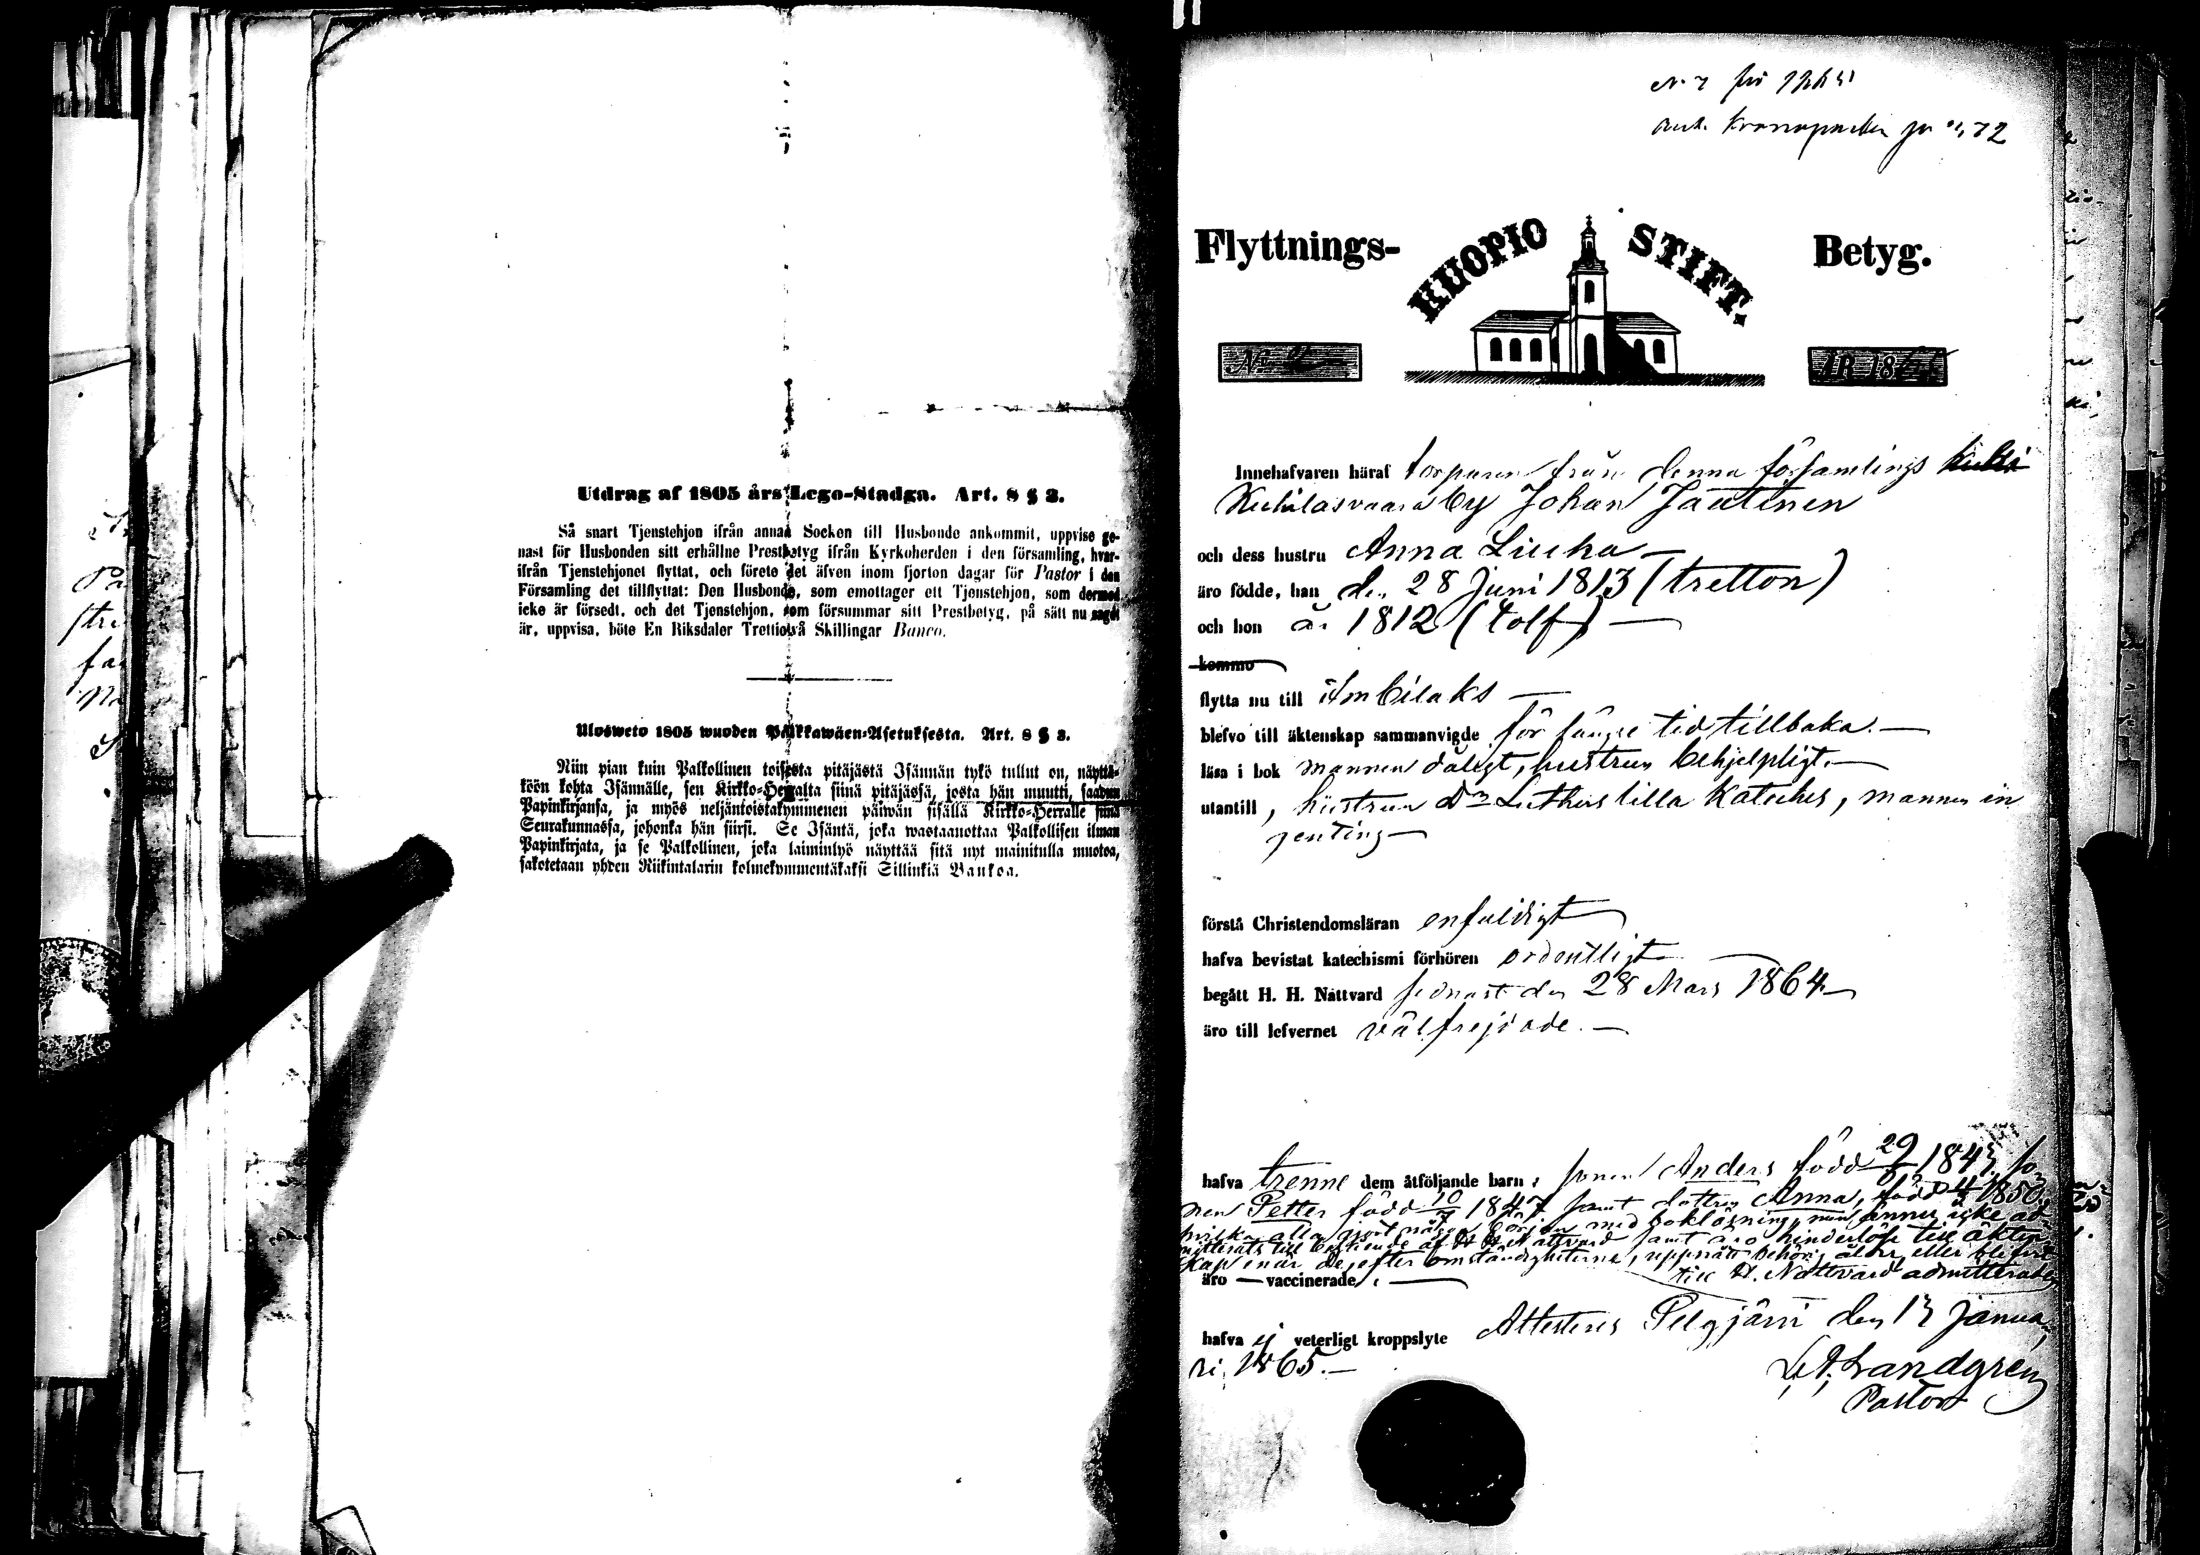 Utdrag af 1805 års Lego-Stadga. Art. 8 § 3.
Så snart Tjenstehjon ifrån annan Socken till Husbonde ankommit, uppvise ge-
nast för Husbonden sitt erhållne Prestbetyg ifrån Kyrkoherden i den församling, hvar-
ifrån Tjenstehjonet flyttat, och förete det äfven inom fjorton dagar för Pastor i den
Församling det tillflyttat: Den Husbonde, som emottager ett Tjenstehjon, som dermed
icke är försedt, och det Tjenstehjon, som försummar sitt Prestbetyg, på sätt nu sagdt
är, uppvisa, böte En Riksdaler Trettiotvå Skillingar Banco.
Ulosweto 1805 wuoden Palkkawäen-Asetuksesta. Art. 8 § 3.
Niin pian kuin Palkollinen toisesta pitäjästä Isännän tykö tullut on, näyttä-
köön kohta Isännälle, sen Kirkko-Herralta siinä pitäjässä, josta hän muutti, saadun
Papinkirjansa, ja myös neljäntoistakymmenen päiwän sisällä Kirkko-Herralle siinä
Seurakunnassa, johonka hän siirsi. Se Isäntä, joka wastaanottaa Palkollisen ilman
Papinkirjata, ja se Palkollinen, joka laiminlyö näyttää sitä nyt mainitulla muotoa,
sakotetaan yhden Riikintalarin kolmekymmentäkaksi Sillinkiä Bankoa.
72
Flyttnings- KUOPIO STIFT. Betyg.
No 2 ÅR 1865
Innehafvaren häraf torparen från denna församlings
Kukilasvaara by Johan Jaatinen
och dess hustru Anna Liuha
äro födde, han d. 28 Juni 1813 (tretton)
och hon år 1812 (tolf)
komma
flytta nu till Imbilaks
blefvo till äktenskap sammanvigde för längre tid tillbaka.
läsa i bok mannen dåligt, hustrun behjelpligt.
utantill, hustrun Dr Luthers lilla Kateches, mannen in
genting
förstå Christendomsläran enfaldigt
hafva bevistat katechismi förhören ordentligt
begått H. H. Nattvard sednast den 28 Mars 1864
äro till lefvernet välfrejdade.
hafva trenne dem åtföljande barn: sonen Anders född 29 184 so
nen Petter född 10 1847 samt dottren Anna, född 1850,
hvilka alla gjort någon början med bokläsning, men ännu icke ad
mitterats till begående af H. H. Nattvard samt äro hinderlöse till äkten
skap innar de, efter omständigheterna, uppnått behörig ålder, eller blifvit
till H. Nattvard admitterade
äro — vaccinerade,
hafva ej veterligt kroppslyte Attesteras Pelgjärvi den 13 Janua
ri 1865.
Landgren
Pastor